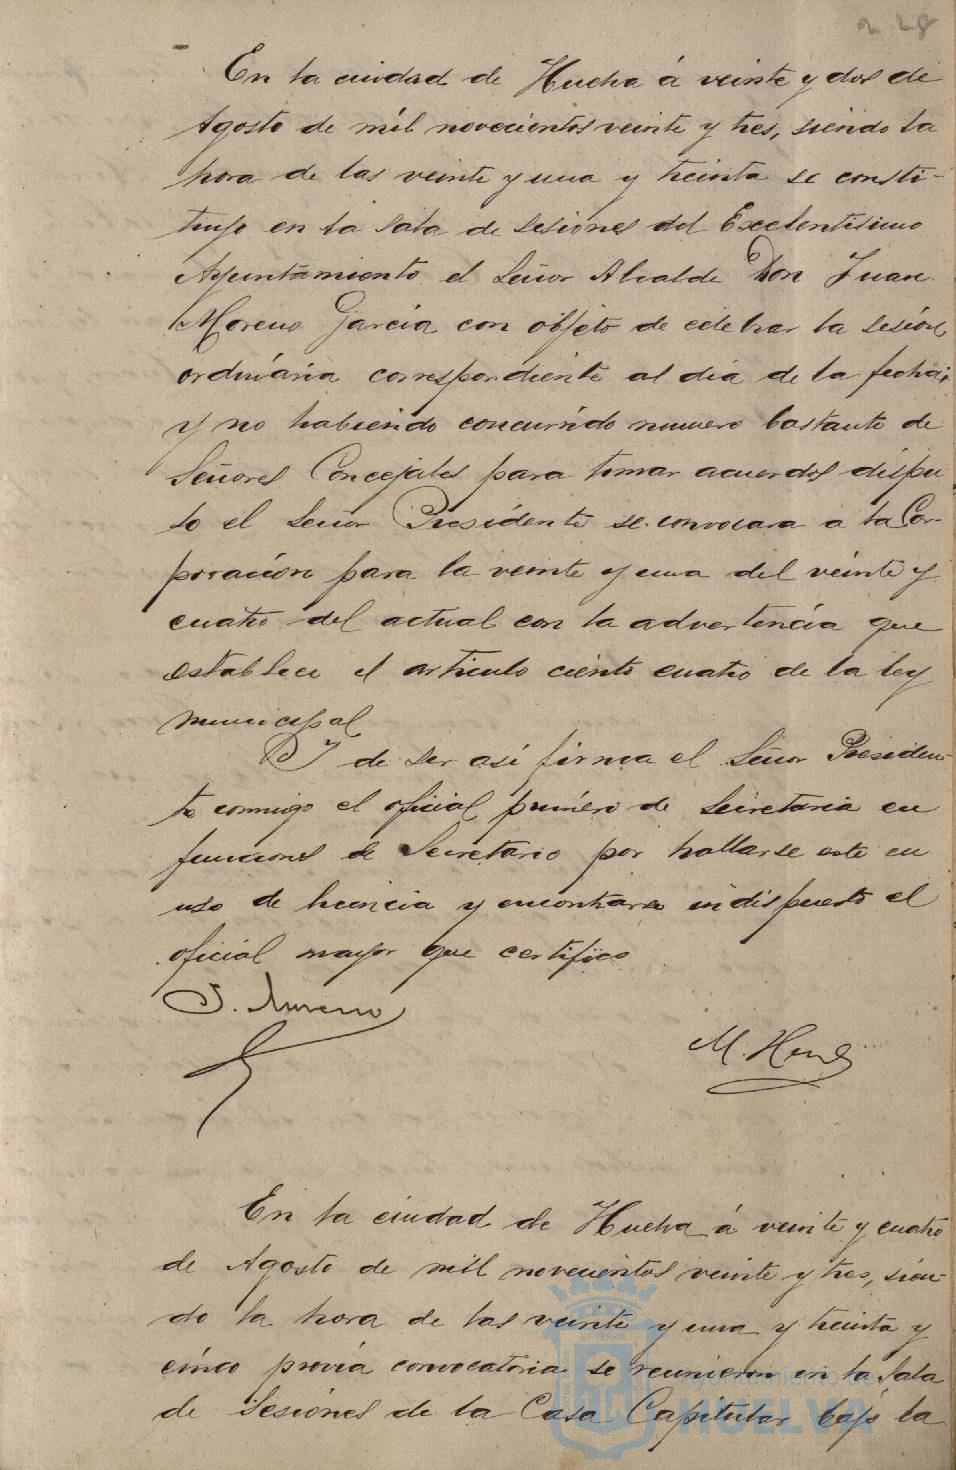 228
En la ciudad de Huelva á veinte y dos de
Agosto de mil novecientos veinte y tres, siendo la
hora de las veinte y una y treinta se consti-
tuyo en la sala de sesiones del Excelentisimo
Ayuntamiento el Señor Alcalde Don Juan
Moreno Garcia con objeto de celebrar la sesión
ordinária correspondiente al dia de la fecha;
y no habiendo concurrido numero bastante de
Señores Concejales para tomar acuerdos dispu
so el Señor Presidente se convocara a la Cor-
poración para la veinte y una del veinte y
cuatro del actual con la advertencia que
establece el articulo ciento cuatro de la ley
municipal
Y de ser asi firma el Señor Presiden-
te conmigo el oficial primero de Secretaria en
funciones de Secretario por hallarse este en
uso de licencia y encontrarse indispuesto el
oficial mayor que certifico
J. Moreno
M.
En la ciudad de Huelva á veinte y cuatro
de Agosto de mil novecientos veinte y tres, sien-
do la hora de las veinte y una y treinta y
cinco previa convocatoria se reunieron en la Sala
de Sesiones de la Casa Capitular bajo la
Ayuntamiento de
HUELVA